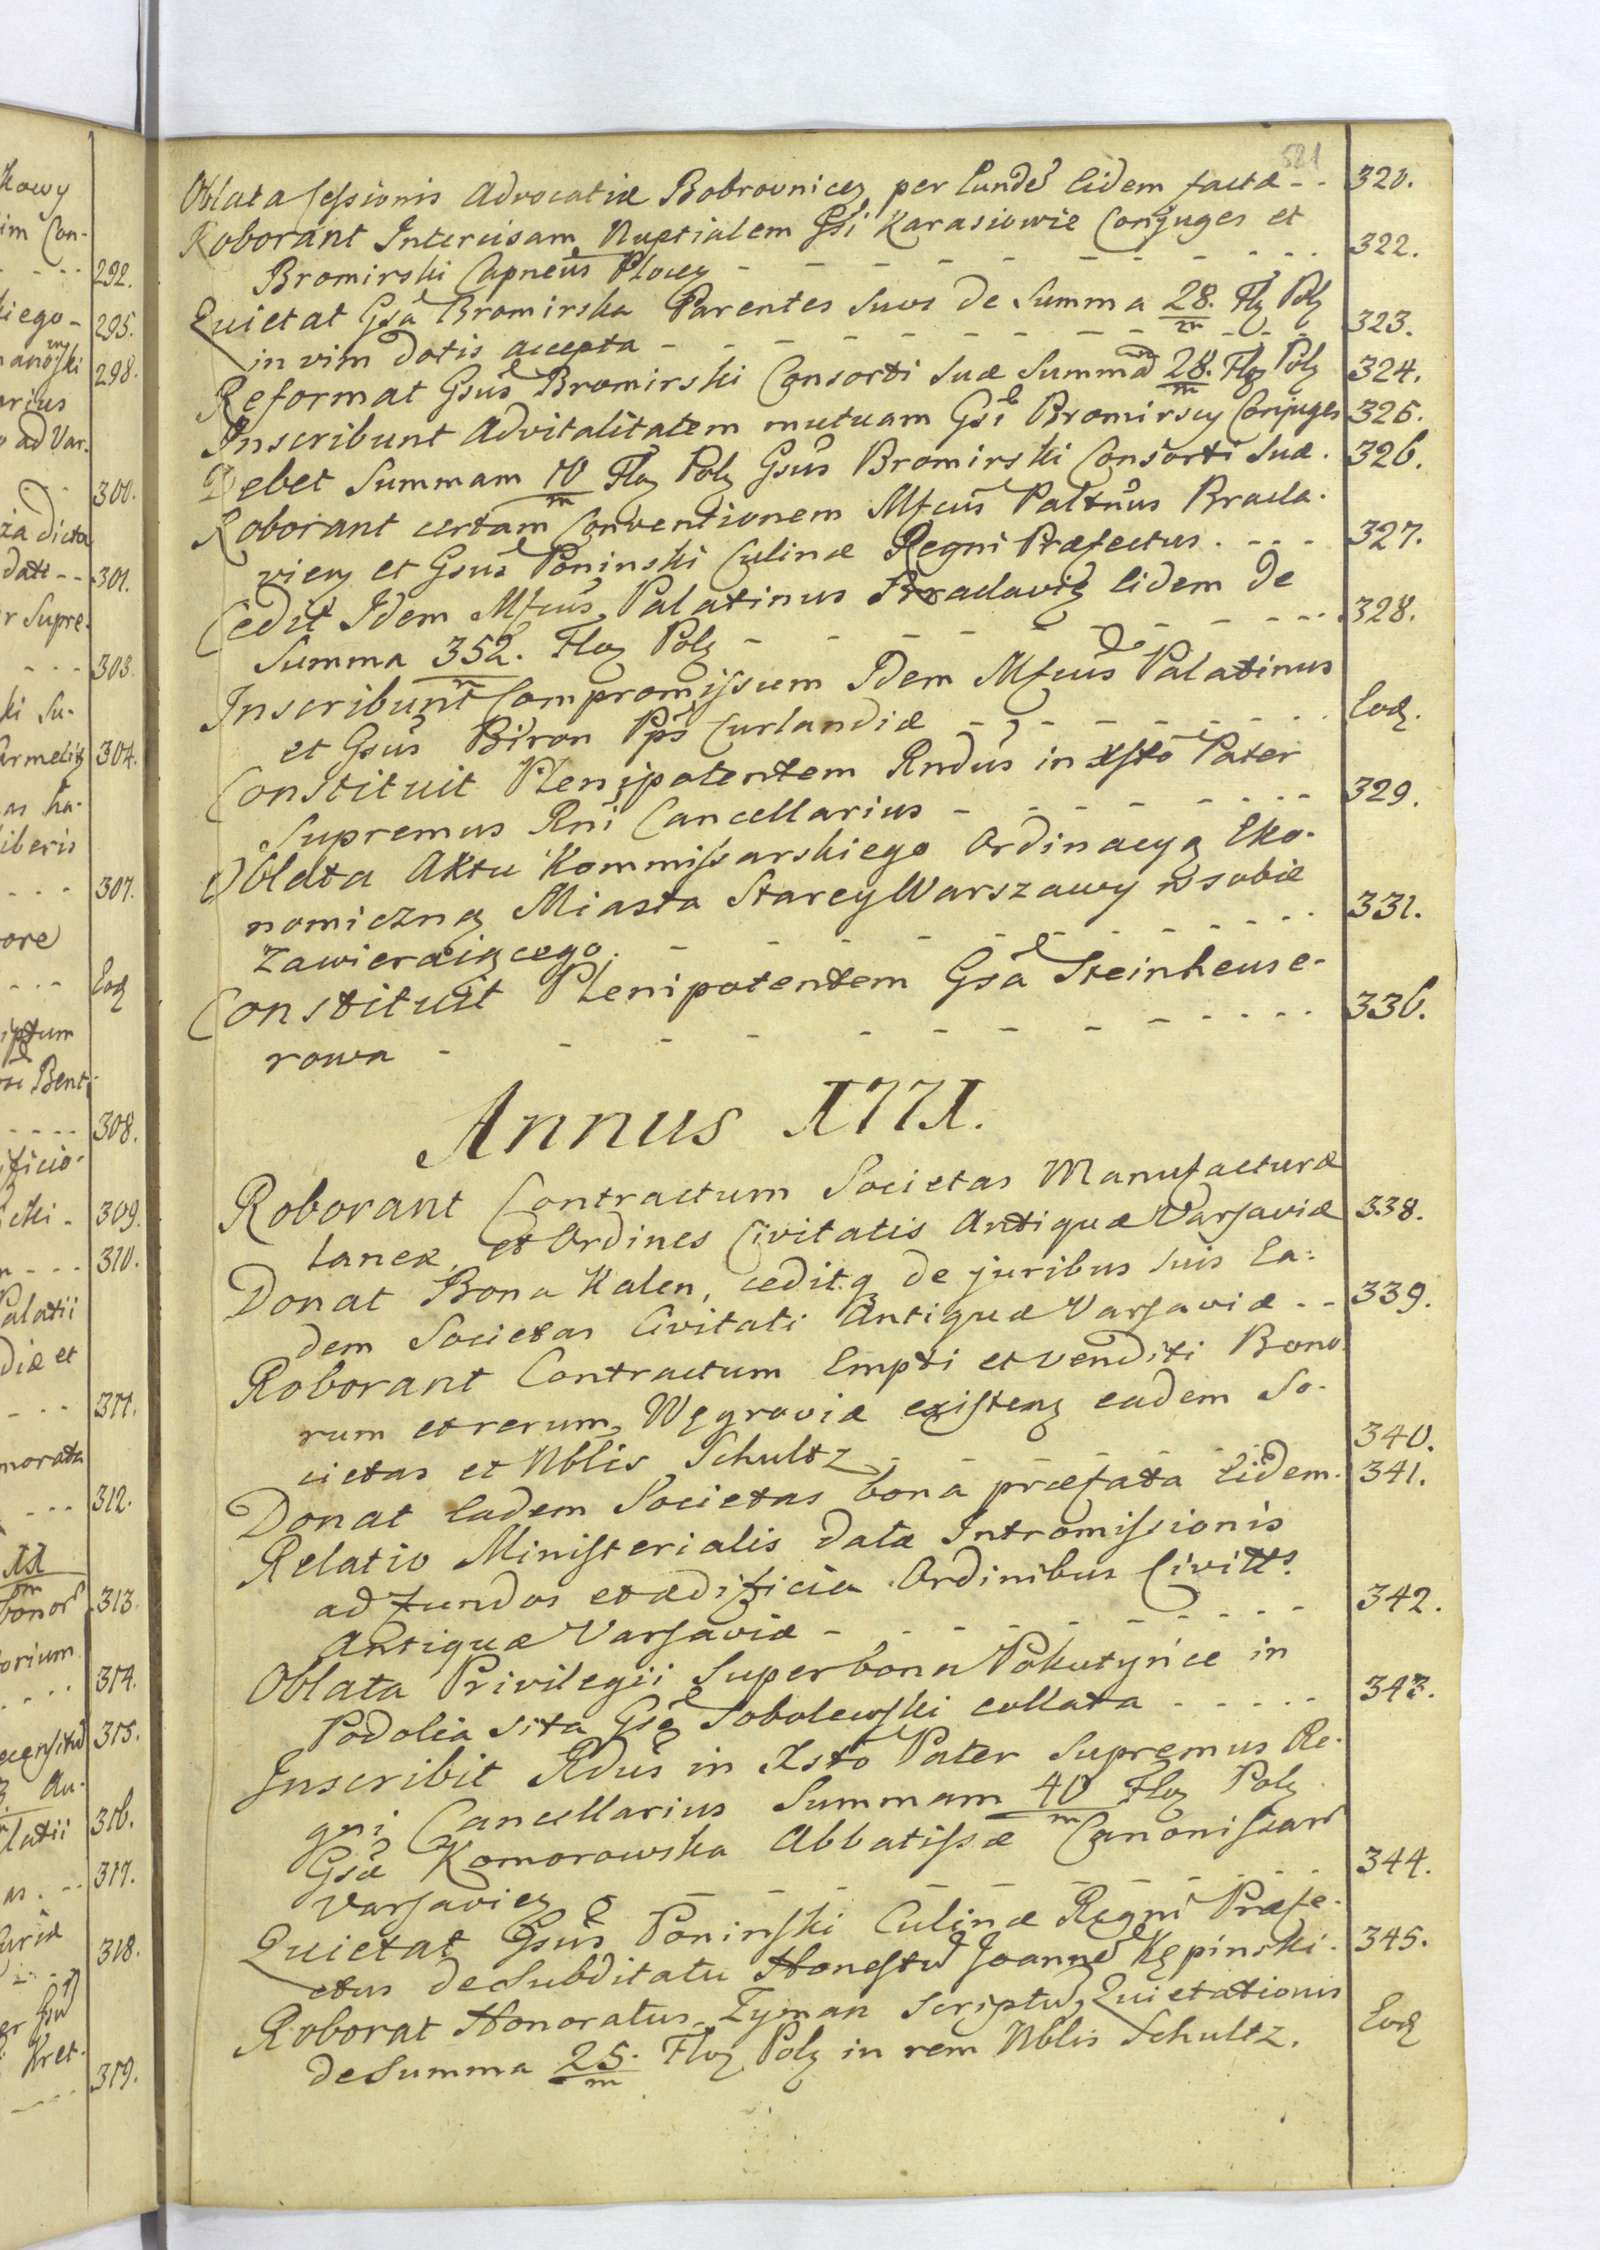 521
Oblata Cessionis Advocatiæ Bobrovnicẽ per Eunde Eidem factæ - - 320.
Roborant Intercisam Nuptialem Gsi Karasiowie Conjuges et
Bromirski Capneus Plocẽ - - - - - - - - - - 322.
Quietat Gsa Bromirska Parentes Suos de Summa 28. Flo Pol
m
in vim dotis accepta - - - - - - - - - - - 323.
Reformat Gsus Bromirski Consorti Suæ Summã 28. Flo Pol 324.
m
Inscribunt Advitalitatem mutuam Gsi Bromirscy Conjuges 325.
Debet Summam 10 Flo Pol Gsus Bromirski Consorti Suæ. 326.
m
Roborant certam Conventionem Mfcus Paltnus Bracla-
vien et Gsus Poninski Culinæ Regni Præfectus. - - - 327.
Cedit Idem Mfcus Palatinus Braclavie Eidem de
Summa 352. Flo Pol - - - - - - - - - - 328.
m
Inscribunt Compromissum Idem Mfcus Palatinus
et Gsus Biron Pps Curlandiæ - - - - - - - - Eod.
Constituit Plenipotentem Rndus in Xsto Pater
Supremus Rni Cancellarius - - - - - - - - 329.
Oblata Aktu Kommissarskiego Ordinacyą Eko-
nomiczną Miasta Starey Warszawy w sobie
Zawieraiącego. - - - - - - - - - 331.
Constituit Plenipotentem Gsa Steinheuse-
rowa - - - - - - - - - - - 336.
Annus 1771.
Roborant Contractum Societas Manufacturæ
Laneæ, et Ordines Civitatis Antiquæ Varsaviæ 338.
Donat Bona Kalen, cedit.q de juribus suis Ea-
dem Societas Civitati Antiquæ Varsaviæ - - 339.
Roborant Contractum Empti et venditi Bono-
rum et rerum, Węgroviæ existen eadem So-
cietas et Nblis Schultz - - - - - 340.
Donat Eadem Societas bona præfata Eidem. 341.
Relatio Ministerialis datæ Intromissionis
ad fundos et ædificia Ordinibus Civitts
Antiquæ Varsaviæ - - - - - - - 342.
Oblata Privilegii Super bona Pokutyńce in
Podolia sita Gse Sobolewski collata - - - - - 343.
Inscribit Rdus in Xsto Pater Supremus Re-
gni Cancellarius Summam 40 Flo Pol
m
Gsæ Komorowska Abbatissæ Canonissarũ
Varsavien - - - - - - - 344.
Quietat Gsus Poninski Culinæ Regni Præfe-
ctus de Subditatu Honestũ Joannẽ Kępinski. 345.
Roborat Honoratus Zyman Scriptũ Quietationis
de Summa 25. Flo Pol in rem Nblis Schultz. Eod
m
292.
295.
298.
300.
301.
303
304.
307.
Eod
308.
309.
310.
311.
312.
313.
314.
315.
316.
317.
318.
319.